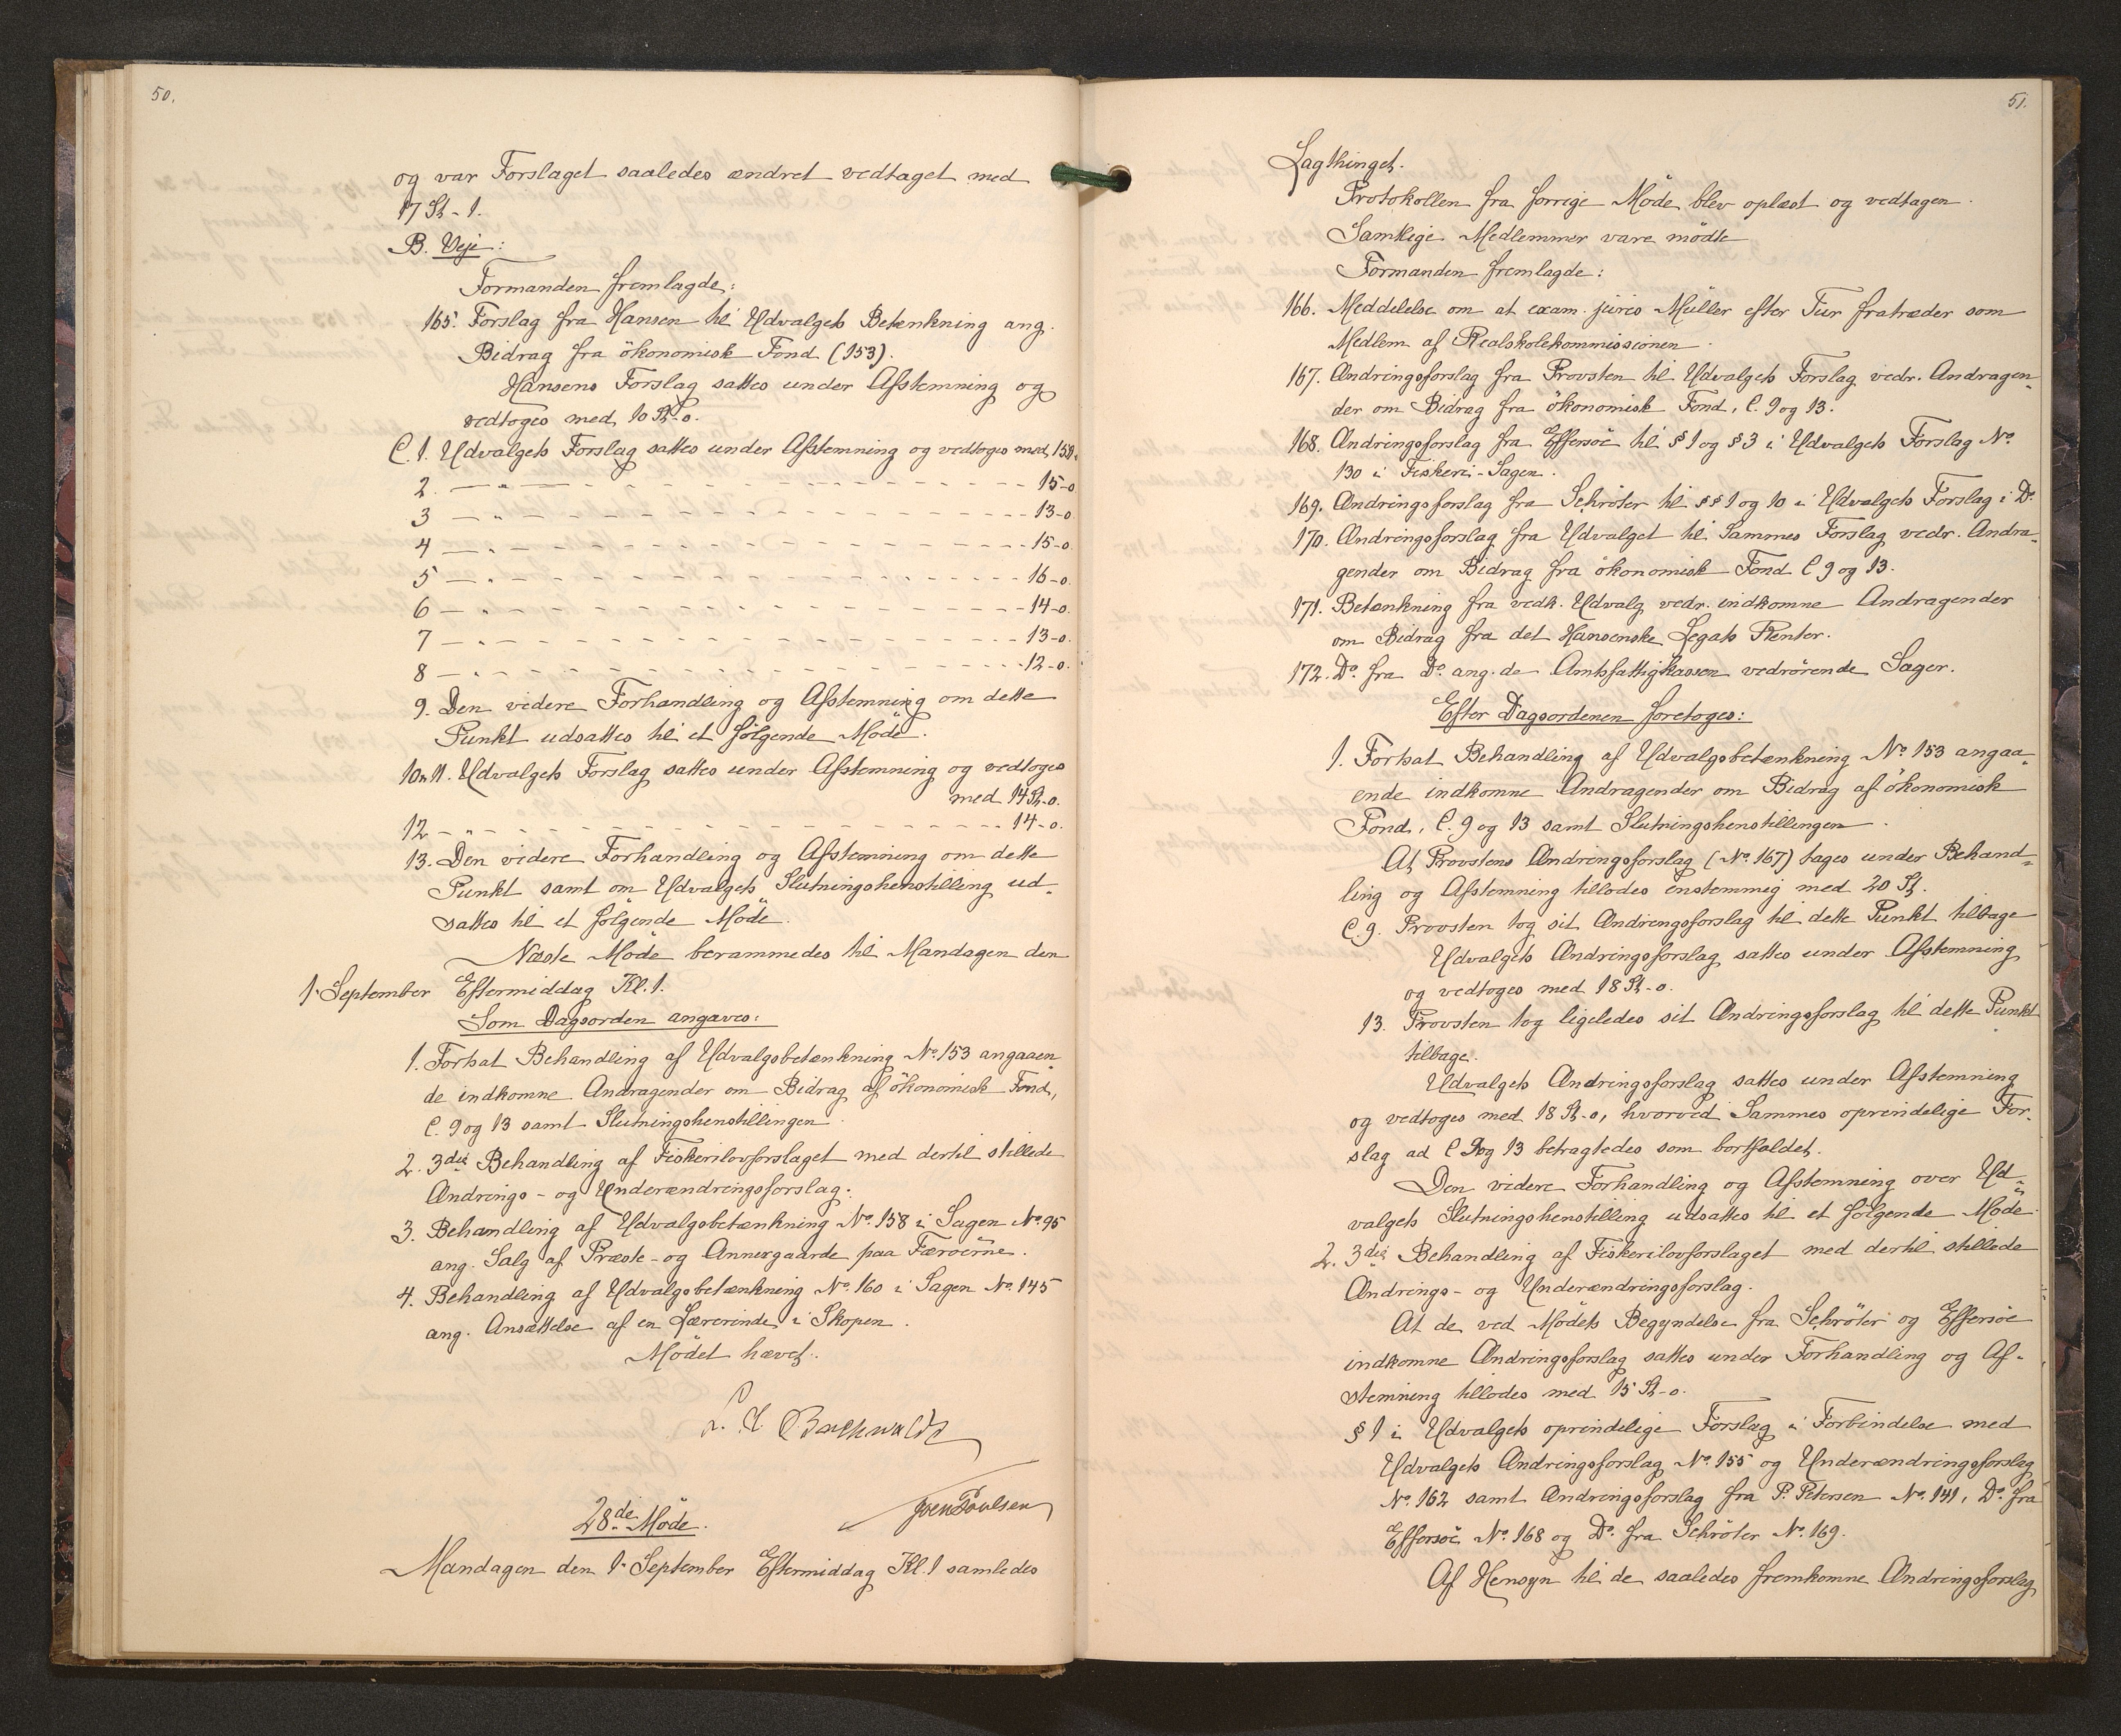 50.
og var Forslaget saaledes ændret vedtaget med
17 St - 1.
B. Veje:
Formanden fremlagde:
165. Forslag fra Hansen til Udvalgets Betænkning ang.
Bidrag fra økonomisk Fond (153).
Hansens Forslag sattes under Afstemning og
vedtoges med 10 St-0.
C. 1. Udvalgets Forslag sattes under Afstemning og vedtoges med
2. — „ — 15-0
3 — „ — 13-0
4 — „ — 15-0.
5 — „ — 16-0.
6 — „ — 14-0.
7 — „ — 13-0.
8 — „ — 12-0.
9. Den videre Forhandling og Afstemning om dette
Punkt udsattes til et følgende Møde.
10 11. Udvalgets Forslag sattes under Afstemning og vedtoges
med 14 St-0.
12 — „ — 14-0.
13. Den videre Forhandling og Afstemning om dette
Punkt samt om Udvalgets Slutningshenstilling ud-
sattes til et følgende Møde.
Næste Møde berammedes til Mandagen den
1. September Eftermiddag Kl. 1.
Som Dagsorden angaves:
1. Fortsat Behandling af Udvalgsbetænkning No. 153 angaaen-
de indkomne Andragender om Bidrag af økonomisk Fond,
C. 9 og 13 samt Slutningshenstillingen.
2. 3die Behandling af Fiskerilovforslaget med dertil stillede
Ændrings- og Underændringsforslag.
3. Behandling af Udvalgsbetænkning No. 158 i Sagen No. 95
ang. Salg af Præste- og Annexgaarde paa Færøerne.
4. Behandling af Udvalgsbetænkning No. 160 i Sagen No. 145
ang. Ansættelse af en Lærerinde i Skopen.
Mødet hævet.
Buchwaldt
Joen Poulsen
28de Møde.
Mandagen den 1. September Eftermiddag Kl. 1 samledes
51.
Lagthinget.
Protokollen fra forrige Møde blev oplæst og vedtagen.
Samtlige Medlemmer vare mødte
Formanden fremlagde:
166. Meddelelse om at exam. juris Müller efter Tur fratræder som
Medlem af Realskolekommissionen.
167. Ændringsforslag fra Provsten til Udvalgets Forslag vedr. Andragen-
der om Bidrag fra økonomisk Fond, C. 9 og 13.
168. Ændringsforslag fra Effersöe til § 1 og § 3 i Udvalgets Forslag No.
130 i Fiskeri-Sagen.
169. Ændringsforslag fra Schröter til §§ 1 og 10 i Udvalgets Forslag i Do.
170. Ændringsforslag fra Udvalget til Sammes Forslag vedr. Andra-
gender om Bidrag fra økonomisk Fond C 9 og 13.
171. Betænkning fra vedk. Udvalg vedr. indkomne Andragender
om Bidrag fra det Hansenske Legats Renter.
172. Do. fra Do. ang. de Amtsfattigkassen vedrørende Sager.
Efter Dagsordenen foretoges:
1. Fortsat Behandling af Udvalgsbetænkning No. 153 angaa-
ende indkomne Andragender om Bidrag af økonomisk
Fond, C. 9 og 13 samt Slutningshenstillingen.
At Provstens Ændringsforslag (No. 167) tages under Behand-
ling og Afstemning tillodes enstemmig med 20 St.
C. 9. Provsten tog sit Ændringsforslag til dette Punkt tilbage
Udvalgets Ændringsforslag sattes under Afstemning
og vedtoges med 18 St-0.
13. Provsten tog ligeledes sit Ændringsforslag til dette Punkt
tilbage.
Udvalgets Ændringsforslag sattes under Afstemning
og vedtoges med 18 St-0, hvorved Sammes oprindelige For-
slag ad C 9 og 13 betragtedes som bortfaldet.
Den videre Forhandling og Afstemning over Ud-
valgets Slutningshenstilling udsattes til et følgende Møde.
2. 3die Behandling af Fiskerilovforslaget med dertil stillede
Ændrings- og Underændringsforslag.
At de ved Mødets Begyndelse fra Schröter og Effersöe
indkomne Ændringsforslag sattes under Forhandling og Af-
stemning tillodes med 15 St-0.
§ 1 i Udvalgets oprindelige Forslag i Forbindelse med
Udvalgets Ændringsforslag No. 155 og Underændringsforslag
No. 162 samt Ændringsforslag fra P. Petersen No. 141, Do. fra
Effersöe No. 168 og Do. fra Schröter No. 169.
Af Hensyn til de saaledes fremkomne Ændringsforslag